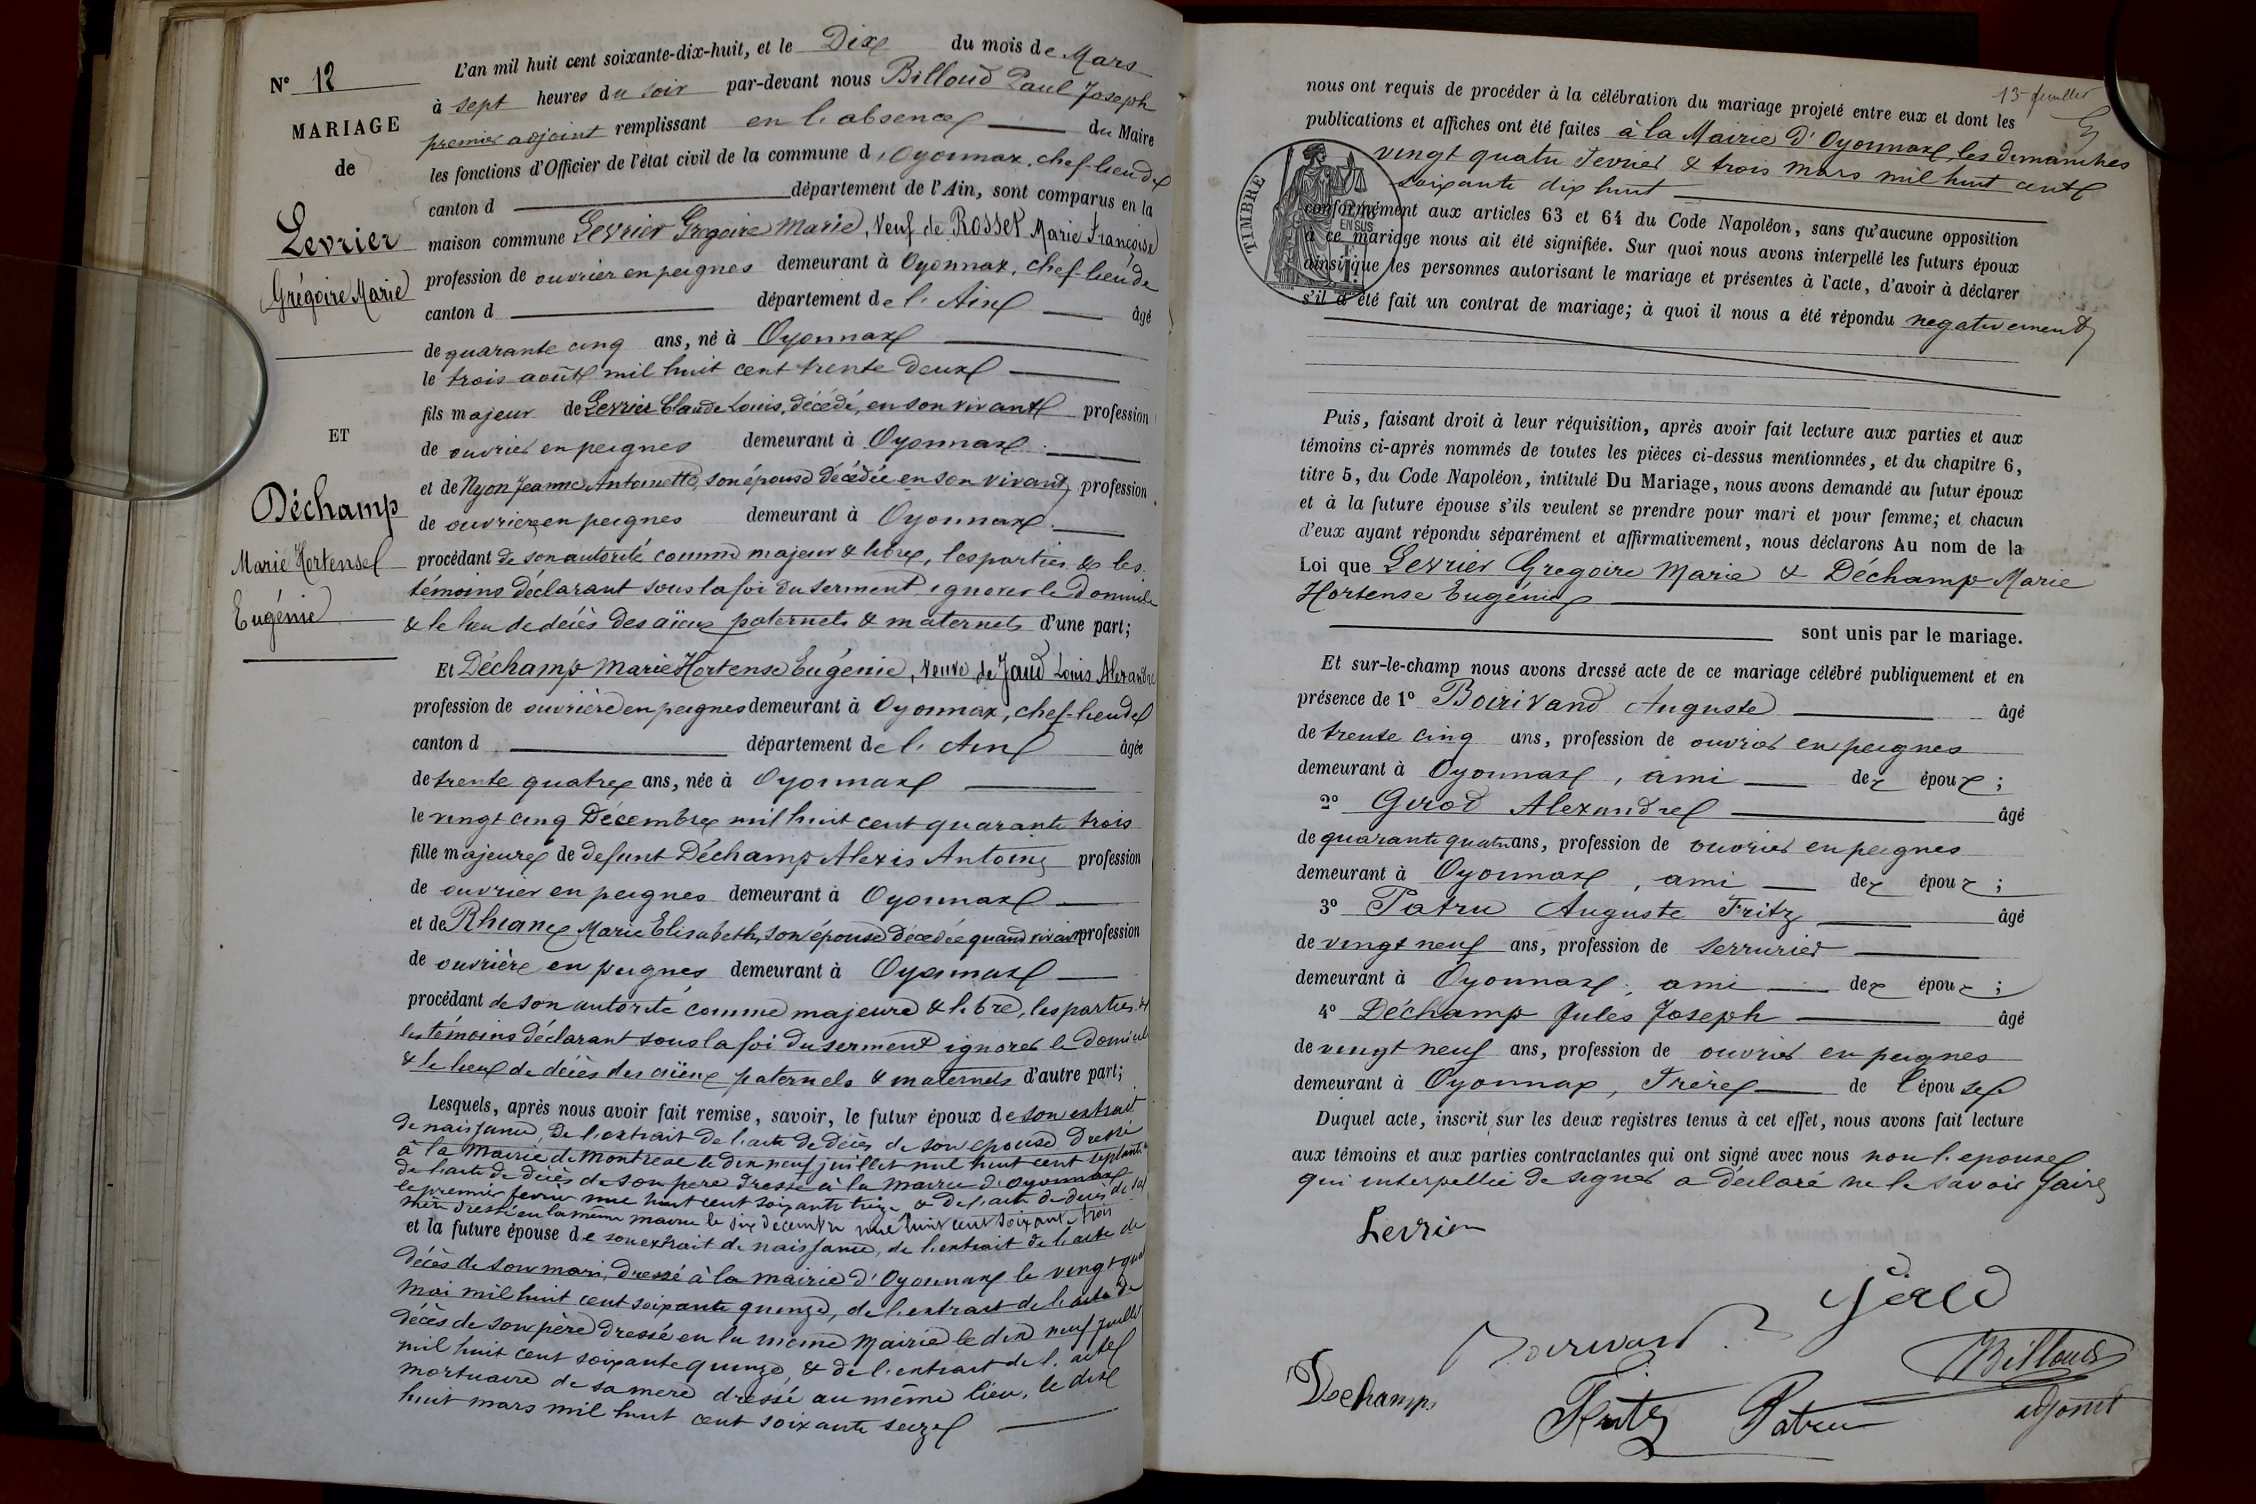 N° 12
MARIAGE
de
Levrier
Grégoire Marie
ET
Déchamp
Marie Hortense
Eugénie
L'an mil huit cent soixante-dix-huit, et le Dix du mois de Mars
à sept heures du soir par-devant nous Billoud Paul Joseph
premier adjoint remplissant en l'absence du Maire
les fonctions d'Officier de l'état civil de la commune d'Oyonnax, chef-lieu de
canton d département de l'Ain, sont comparus en la
maison commune Levrier Gregoire Marie, Veuf de Rosset Marie Françoise
profession de ouvrier en peignes demeurant à Oyonnax, chef-lieu de
canton d département de l'Ain âgé
de quarante cinq ans, né à Oyonnax
le trois août mil huit cent trente deux
fils majeur de Levrier Claude Louis, décédé, en son vivant profession
de ouvrier en peignes demeurant à Oyonnax.
et de Nyon Jeanne Antoinette, son épouse décédée en son vivant, profession
de ouvriere en peignes demeurant à Oyonnax.
procédant de son autorité comme majeur & libre, les parties & les
témoins déclarant sous la foi du serment ignorer le domicile
& le lieu de décès des aïeux paternels & maternels d'une part;
Et Déchamp Marie Hortense Eugénie, Veuve de Jaud Louis Alexandre
profession de ouvrière en peignes demeurant à Oyonnax, chef-lieu de
canton d département de l'Ain âgée
de trente quatre ans, née à Oyonnax
le vingt cinq Décembre mil huit cent quarante trois
fille majeure de defunt Déchamp Alexis Antoine profession
de ouvrier en peignes demeurant à Oyonnax
et de Marie Elisabeth, son épouse décédée quand vivait profession
de ouvrière en peignes demeurant à Oyonnax
procédant de son autorité comme majeure & libre, les parties &
les témoins déclarant sous la foi du serment ignorer le domicile
& le lieu de décès des aïeux paternels & maternels d'autre part;
Lesquels, après nous avoir fait remise, savoir, le futur époux de son extrait
de naissance, de l'extrait de l'acte de décès de son epouse dressé
à la Mairie de Montreal le dix neuf juillet mil huit cent septante
de l'acte de décès de son pere dressé à la mairie d'Oyonnax
le premier fevrier mil huit cent soixante treize & de l'acte de deces de sa
mère dressé en la même mairie le six decembre mil huit cent soixante trois
et la future épouse de son extrait de naissance, de l'extrait de l'acte de
décès de son mari, dressé à la mairie d'Oyonnax le vingt
mai mil huit cent soixante quinze, de l'extrait de l'acte de
décès de son père dressé en la même Mairie le dix neuf juillet
mil huit cent soixante quinze, & de l'extrait de l'acte
mortuaire de sa mere dressé au même lieu, le dix
huit mars mil huit cent soixante seize
13 feuillet
nous ont requis de procéder à la célébration du mariage projeté entre eux et dont les
publications et affiches ont été faites à la Mairie d'Oyonnax, les dimanches
vingt quatre Fevrier & trois mars mil huit cent
soixante dix huit
TIMBRE
conformément aux articles 63 et 64 du Code Napoléon, sans qu'aucune opposition
à ce mariage nous ait été signifiée. Sur quoi nous avons interpellé les futurs époux
ainsi que les personnes autorisant le mariage et présentes à l'acte, d'avoir à déclarer
s'il a été fait un contrat de mariage; à quoi il nous a été répondu negativement
Puis, faisant droit à leur réquisition, après avoir fait lecture aux parties et aux
témoins ci-après nommés de toutes les pièces ci-dessus mentionnées, et du chapitre 6,
titre 5, du Code Napoléon, intitulé Du Mariage, nous avons demandé au futur époux
et à la future épouse s'ils veulent se prendre pour mari et pour femme; et chacun
d'eux ayant répondu séparément et affirmativement, nous déclarons Au nom de la
Loi que Levrier Gregoire Marie & Déchamp Marie
Hortense Eugénie
sont unis par le mariage.
Et sur-le-champ nous avons dressé acte de ce mariage célébré publiquement et en
présence de 1° Boirivand Auguste âgé
de trente cinq ans, profession de ouvrier en peignes
demeurant à Oyonnax, ami des époux;
2° Girod Alexandre âgé
de quarante quatre ans, profession de ouvrier en peignes
demeurant à Oyonnax, ami des époux;
3° Patru Auguste Fritz âgé
de vingt neuf ans, profession de serrurier
demeurant à Oyonnax, ami des époux;
4° Déchamp Jules Joseph âgé
de vingt neuf ans, profession de ouvrier en peignes
demeurant à Oyonnax, Frère de l'épouse
Duquel acte, inscrit sur les deux registres tenus à cet effet, nous avons fait lecture
aux témoins et aux parties contractantes qui ont signé avec nous non l'epouse
qui interpellée de signer a déclaré ne le savoir faire
Levrier
Girod
Boirivand
Billoud
adjoint
Dechamp
Fritz Patru